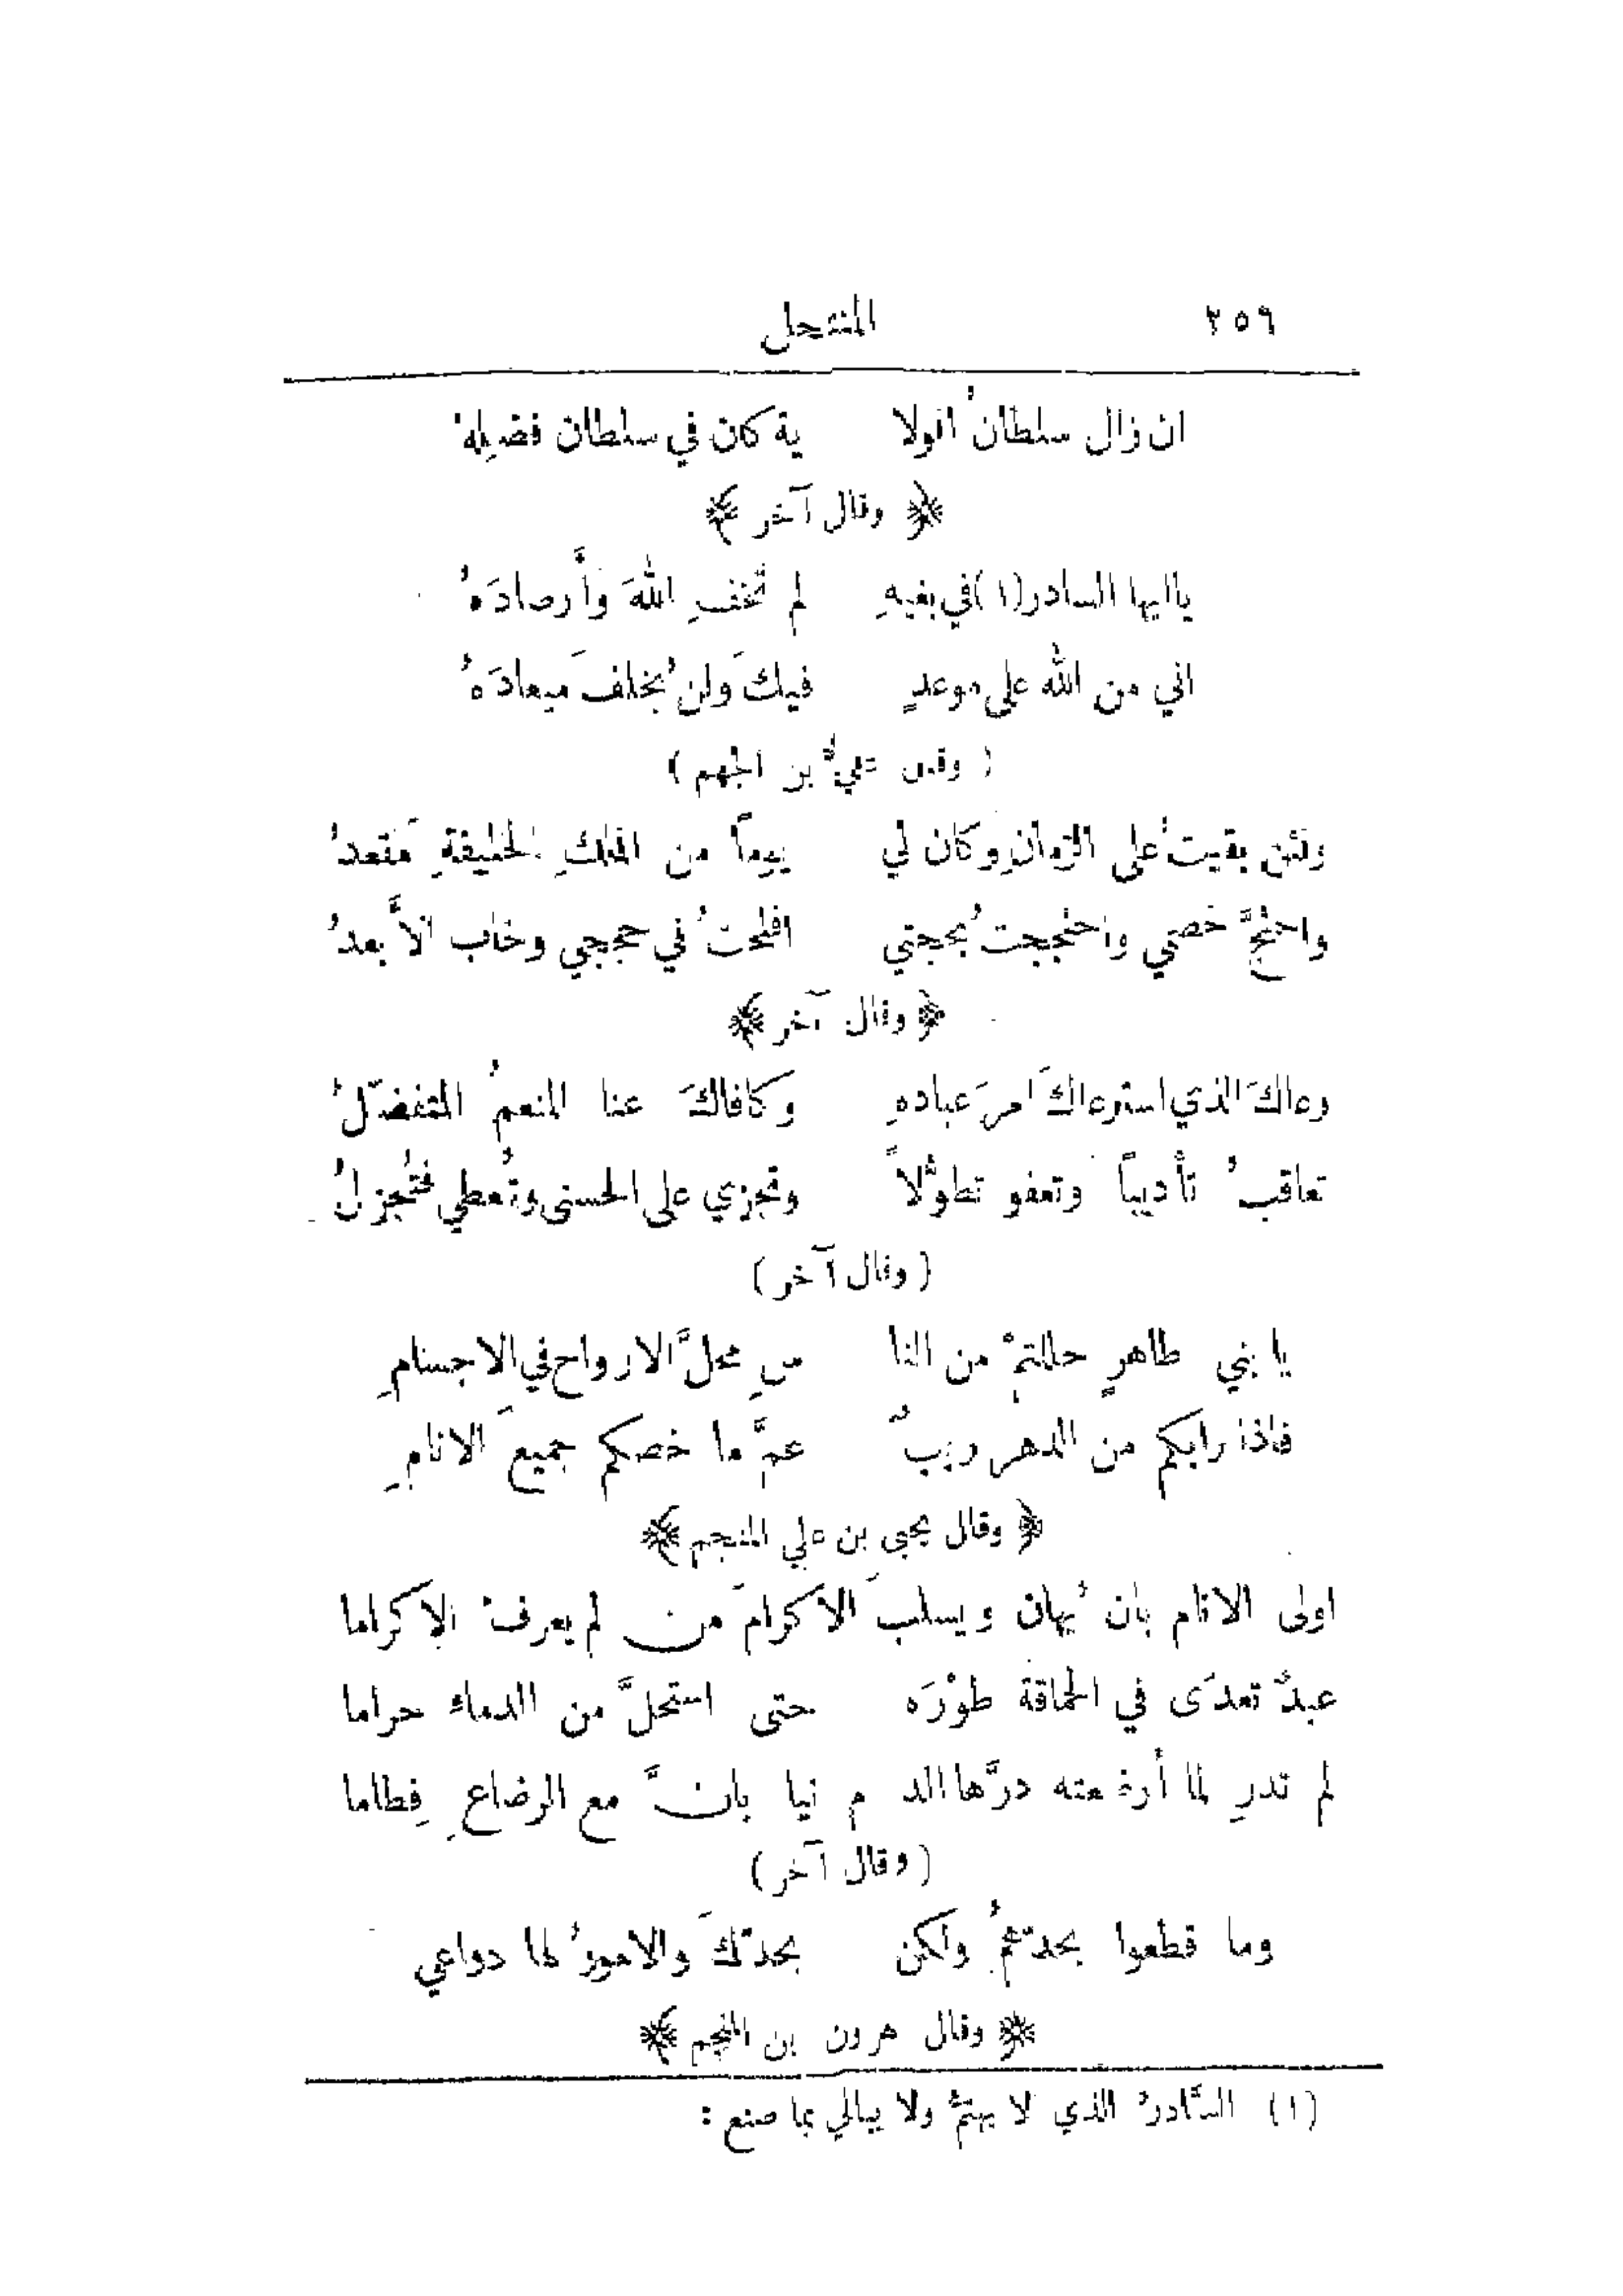 ٢٥٩ المنتحل
ان زال سلطانُ الولا ية كان في سلطان فضلِهْ
﴿ وقال آخر ﴾
ياايها السادر(١)في بغيهِ لم تخفِ اللهَ وأَرصادَهُ
اني من الله على موعدٍ فيكَ ولن يُخلفَ ميعادَهُ
( وقال عليُّ بن الجهم )
ولئن بقيتُ على الزمانِ وكان لي يوماً من الملكِ الخليفةِ مَقعدُ
واحتجَّ خصمي واحتججتُ بحجتي افلحتُ في حججي وخاب الأَبعدُ
﴿ وقال آخر ﴾
رعاكَ الذي استرعاكَ امرَ عبادهِ وكافاكَ عنا المنعمُ المتفضّلُ
تعاقبُ تأديباً وتعفو تطوُّلاً وتجزي على الحسنى وتُعطي فتُجزلُ
( وقال آخر )
يا بني طاهرٍ حللتمْ من النا سِ محلَّ الارواح في الاجسامِ
فاذا رابكم من الدهر ريبٌ عمَّ ما خصكم جميعَ الانامِ
﴿ وقال يحيى بن علي المنجم ﴾
اولى الانام بان يُهان ويسلبَ الاكرامَ من لم يعرفْ الإكراما
عبدٌ تعدَّى في الحماقة طوْرَه حتى استحلَّ من الدماء حراما
لم تدرِ لما أُرضعته درَّها الد م نيا بان مع الرضاعِ فِطاما
( وقال آخر )
وما قطعوا بحدّهمُ ولكن بحدّكَ والامورُ لها دواعي
﴿ وقال هرون بن المنجم ﴾
(١) السَّادرُ الذي لا يهتمُّ ولا يبالي بما صنع :